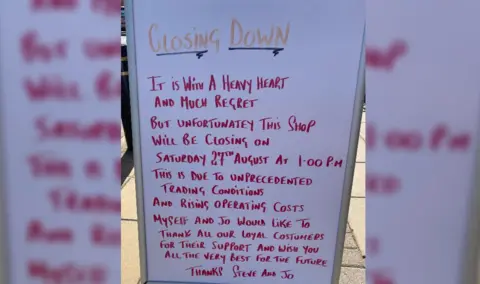 CLOSING DOWN
IT IS WITH A HEAVY HEART
AND MUCH REGRET
BUT UNFORTUNATEY THIS SHOP
WILL BE CLOSING ON
SATURDAY 27TH AUGUST AT 1-00 PM
THIS IS DUE TO UNPRECEDENTED
TRADING CONDITIONS
AND RISING OPERATING COSTS
MYSELF AND JO WOULD LIKE TO
THANK ALL OUR LOYAL COSTUMERS
FOR THEIR SUPPORT AND WISH YOU
ALL THE VERY BEST FOR THE FUTURE
THANKS STEVE AND JO